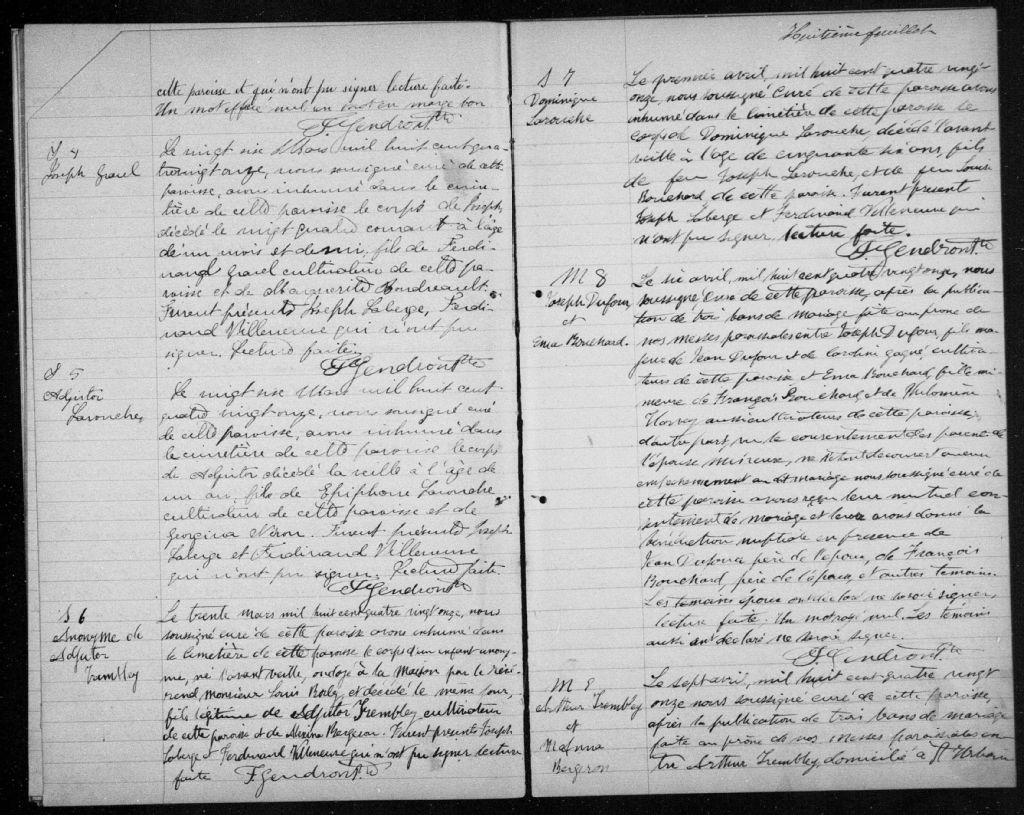 cette paroisse et qui n'ont pu signer lecture faite.
Un mot effacé nul en marge bon
J. Gendron Ptre
S 4
Joseph Gravel
Le vingt six Mars mil huit cent qua
tre vingt onze, nous soussigné curé de cette
paroisse, avons inhumé dans le cime-
tière de cette paroisse le corps de Joseph
décédé le vingt quatre courant à l'âge
de un mois et demi, fils de Ferdi-
nand Gravel cultivateur de cette pa-
roisse et de Marguerite Boudreault.
Furent présents Joseph Laberge, Ferdi-
nand Villeneuve qui n'ont pu
signer. Lecture faite.
J Gendron Ptre
S 5
Adjutor
Larouche
Le vingt six Mars mil huit cent
quatre vingt onze, nous soussigné curé
de cette paroisse, avons inhumé dans
le cimetière de cette paroisse le corps
de Adjutor décédé la veille à l'âge de
un an, fils de Epiphane Larouche
cultivateur de cette paroisse et de
Georgina Néron. Furent présents Joseph
Laberge et Ferdinand Villeneuve
qui n'ont pu signer. Lecture faite.
J Gendron Ptre
S 6
Anonyme de
Adjutor
Trembley
Le trente Mars mil huit cent quatre vingt onze, nous
soussigné curé de cette paroisse avons inhumé dans
le cimetière de cette paroisse le corps d'un enfant anony-
me, né l'avant veille, ondoyé à la maison par le révé-
rend monsieur Louis et décédé le même jour,
fils légitime de Adjutor Trembley cultivateur
de cette paroisse et de Bergeron. Furent présents Joseph
Laberge et Ferdinand Villeneuve qui n'ont pu signer lecture
faite J. Gendron Ptre
Huitième feuillet
S 7
Dominique
Larouche
Le premier avril, mil huit cent quatre vingt
onze, nous soussigné curé de cette paroisse avons
inhumé dans le cimetière de cette paroisse le
corps de Dominique Larouche décédé l'avant
veille à l'âge de cinquante six ans, fils
de feu Joseph Larouche, et de feu Louise
Bouchard de cette paroisse. Furent présents
Joseph Laberge et Ferdinand Villeneuve qui
n'ont pu signer, lecture faite.
J Gendron Ptre
M 8
Joseph Dufour
et
Ema Bouchard.
Le six avril, mil huit cent quatre vingt onze, nous
soussigné curé de cette paroisse, après la publica-
tion de trois bans de mariage faite au prône de
nos messes paroissiales entre Joseph Dufour fils ma-
jeur de Jean Dufour et de Caroline Gagné cultiva-
teurs de cette paroisse et Ema Bouchard, fille mi-
neure de François Bouchard et de Philomène
aussi cultivateurs de cette paroisse,
d'autre part, vu le consentement des parents de
l'épouse mineure, ne s'étant découvert aucun
empêchement au dit mariage nous soussigné curé de
cette paroisse avons reçu leur mutuel con-
sentement de mariage et leur avons donné la
bénédiction nuptiale en présence de
Jean Dufour père de l'époux, de François
Bouchard, père de l'épouse, et autres témoins.
Les époux ont déclaré ne savoir signer,
lecture faite. Un mot rayé nul. Les témoins
aussi ont déclaré ne savoir signer.
J. Gendron Ptre
M 9
Arthur Trembley
et
Bergeron
Le sept avril, mil huit cent quatre vingt
onze nous soussigné curé de cette paroisse,
après la publication de trois bans de mariage
faite au prône de nos messes paroissiales en-
tre Arthur Trembley, domicilié à St Urbain